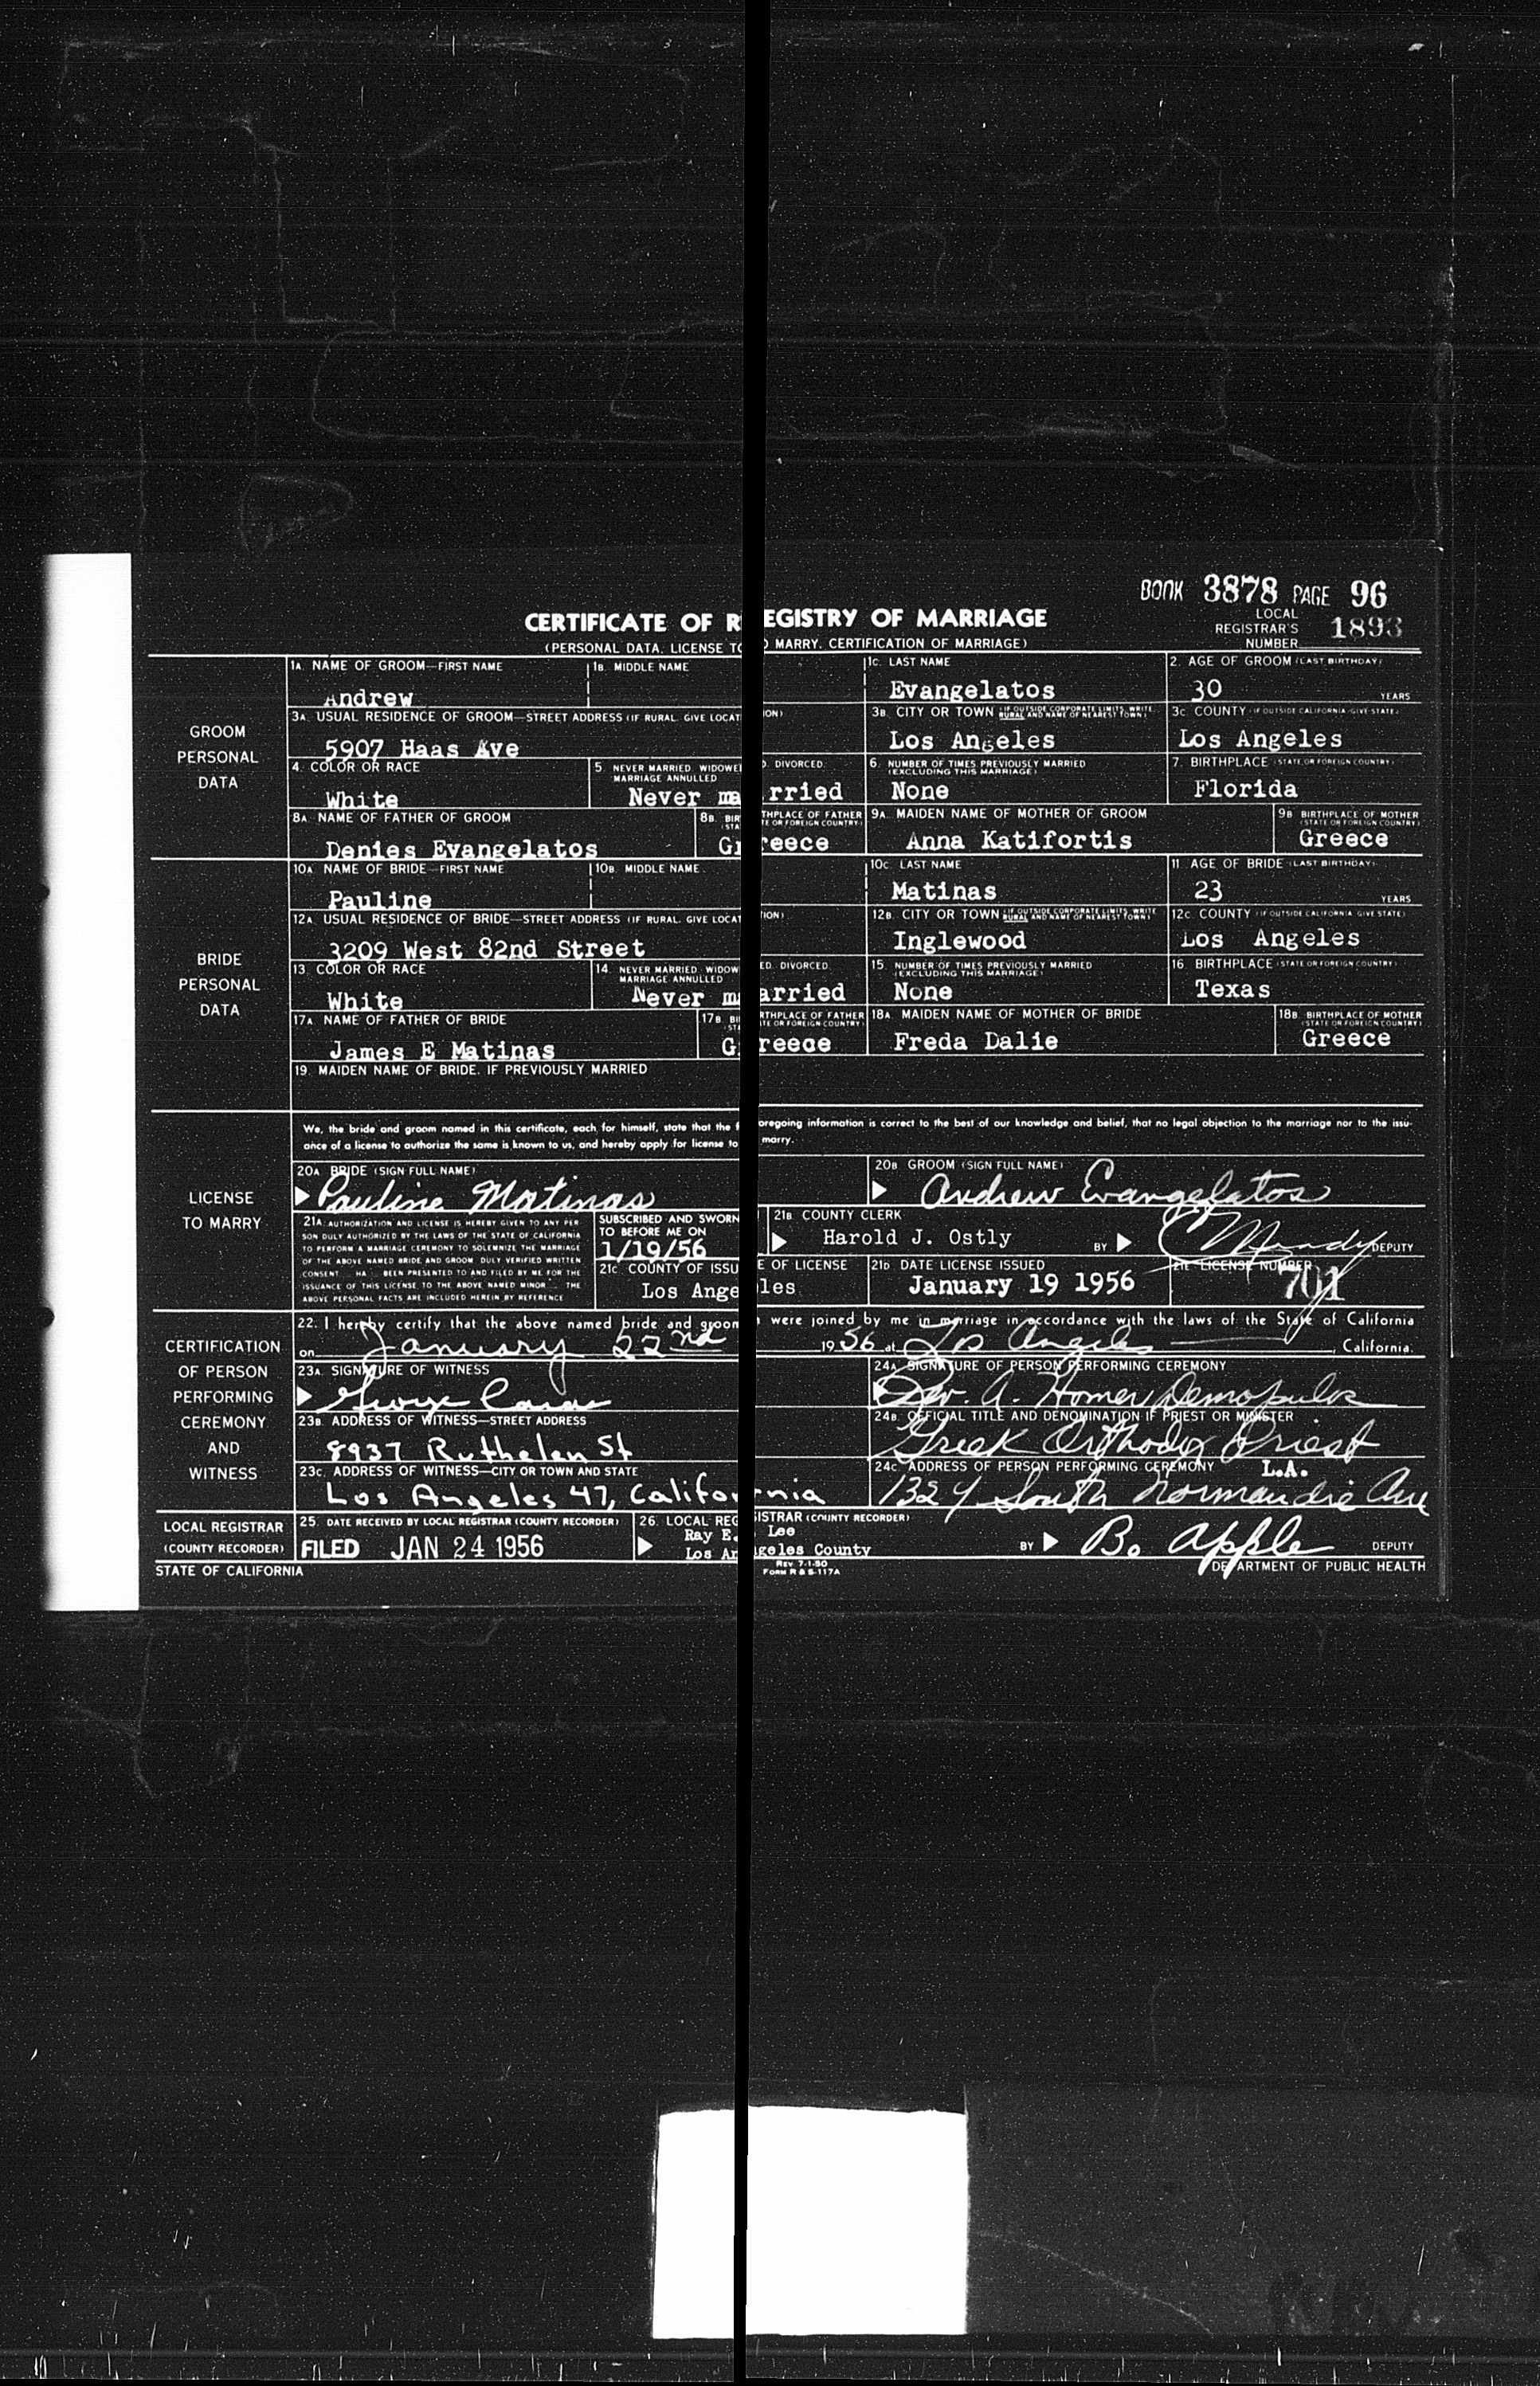 BOOK 3878 PAGE 96
CERTIFICATE OF REGISTRY OF MARRIAGE
LOCAL REGISTRAR'S NUMBER 1893
(PERSONAL DATA, LICENSE TO MARRY, CERTIFICATION OF MARRIAGE)
GROOM PERSONAL DATA
1A. NAME OF GROOM—FIRST NAME 1B. MIDDLE NAME 1C. LAST NAME 2. AGE OF GROOM (LAST BIRTHDAY)
Andrew Evangelatos 30 YEARS
3A. USUAL RESIDENCE OF GROOM—STREET ADDRESS (IF RURAL, GIVE LOCATION) 3B. CITY OR TOWN (IF OUTSIDE CORPORATE LIMITS, WRITE RURAL AND NAME OF NEAREST TOWN) 3C. COUNTY (IF OUTSIDE CALIFORNIA, GIVE STATE)
5907 Haas Ave Los Angeles Los Angeles
4. COLOR OR RACE 5. NEVER MARRIED, WIDOWED, DIVORCED, MARRIAGE ANNULLED 6. NUMBER OF TIMES PREVIOUSLY MARRIED (EXCLUDING THIS MARRIAGE) 7. BIRTHPLACE (STATE OR FOREIGN COUNTRY)
White Never married None Florida
8A. NAME OF FATHER OF GROOM 8B. BIRTHPLACE OF FATHER (STATE OR FOREIGN COUNTRY) 9A. MAIDEN NAME OF MOTHER OF GROOM 9B. BIRTHPLACE OF MOTHER (STATE OR FOREIGN COUNTRY)
Denies Evangelatos Greece Anna Katifortis Greece
BRIDE PERSONAL DATA
10A. NAME OF BRIDE—FIRST NAME 10B. MIDDLE NAME 10C. LAST NAME 11. AGE OF BRIDE (LAST BIRTHDAY)
Pauline Matinas 23 YEARS
12A. USUAL RESIDENCE OF BRIDE—STREET ADDRESS (IF RURAL, GIVE LOCATION) 12B. CITY OR TOWN (IF OUTSIDE CORPORATE LIMITS, WRITE RURAL AND NAME OF NEAREST TOWN) 12C. COUNTY (IF OUTSIDE CALIFORNIA, GIVE STATE)
3209 West 82nd Street Inglewood Los Angeles
13. COLOR OR RACE 14. NEVER MARRIED, WIDOWED, DIVORCED, MARRIAGE ANNULLED 15. NUMBER OF TIMES PREVIOUSLY MARRIED (EXCLUDING THIS MARRIAGE) 16. BIRTHPLACE (STATE OR FOREIGN COUNTRY)
White Never married None Texas
17A. NAME OF FATHER OF BRIDE 17B. BIRTHPLACE OF FATHER (STATE OR FOREIGN COUNTRY) 18A. MAIDEN NAME OF MOTHER OF BRIDE 18B. BIRTHPLACE OF MOTHER (STATE OR FOREIGN COUNTRY)
James E Matinas Greece Freda Dalie Greece
19. MAIDEN NAME OF BRIDE, IF PREVIOUSLY MARRIED
LICENSE TO MARRY
We, the bride and groom named in this certificate, each for himself, state that the foregoing information is correct to the best of our knowledge and belief, that no legal objection to the marriage nor to the issu-
ance of a license to authorize the same is known to us, and hereby apply for license to marry.
20A. BRIDE (SIGN FULL NAME) 20B. GROOM (SIGN FULL NAME)
Pauline Matinas Andrew Evangelatos
21A. AUTHORIZATION AND LICENSE IS HEREBY GIVEN TO ANY PER
SON DULY AUTHORIZED BY THE LAWS OF THE STATE OF CALIFORNIA
TO PERFORM A MARRIAGE CEREMONY TO SOLEMNIZE THE MARRIAGE
OF THE ABOVE NAMED BRIDE AND GROOM. DULY VERIFIED WRITTEN
CONSENT HA BEEN PRESENTED TO AND FILED BY ME FOR THE
ISSUANCE OF THIS LICENSE TO THE ABOVE NAMED MINOR. THE
ABOVE PERSONAL FACTS ARE INCLUDED HEREIN BY REFERENCE
SUBSCRIBED AND SWORN TO BEFORE ME ON
1/19/56
21B. COUNTY CLERK
Harold J. Ostly BY DEPUTY
21C. COUNTY OF ISSUE OF LICENSE 21D. DATE LICENSE ISSUED 21E. LICENSE NUMBER
Los Angeles January 19 1956 701
CERTIFICATION OF PERSON PERFORMING CEREMONY AND WITNESS
22. I hereby certify that the above named bride and groom were joined by me in marriage in accordance with the laws of the State of California
on January 22nd 1956 at Los Angeles, California.
23A. SIGNATURE OF WITNESS 24A. SIGNATURE OF PERSON PERFORMING CEREMONY
George Rev. A. Homer Demopulos
23B. ADDRESS OF WITNESS—STREET ADDRESS 24B. OFFICIAL TITLE AND DENOMINATION IF PRIEST OR MINISTER
8937 Ruthelen St Greek Orthodox Priest
23C. ADDRESS OF WITNESS—CITY OR TOWN AND STATE 24C. ADDRESS OF PERSON PERFORMING CEREMONY L.A.
Los Angeles 47, California 1324 South Normandie Ave
LOCAL REGISTRAR (COUNTY RECORDER)
25. DATE RECEIVED BY LOCAL REGISTRAR (COUNTY RECORDER) 26. LOCAL REGISTRAR (COUNTY RECORDER)
FILED JAN 24 1956 Ray E. Lee
Los Angeles County BY B. Apple DEPUTY
STATE OF CALIFORNIA REV. 7-1-50 FORM R & S-117A DEPARTMENT OF PUBLIC HEALTH